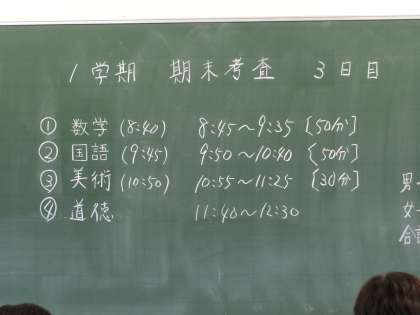 1学期 期末考査 3日目
① 数学 (8:40) 8:45～9:35 [50分]
② 国語 (9:45) 9:50～10:40 [50分]
③ 美術 (10:50) 10:55～11:25 [30分]
④ 道徳 11:40～12:30
男
女
合